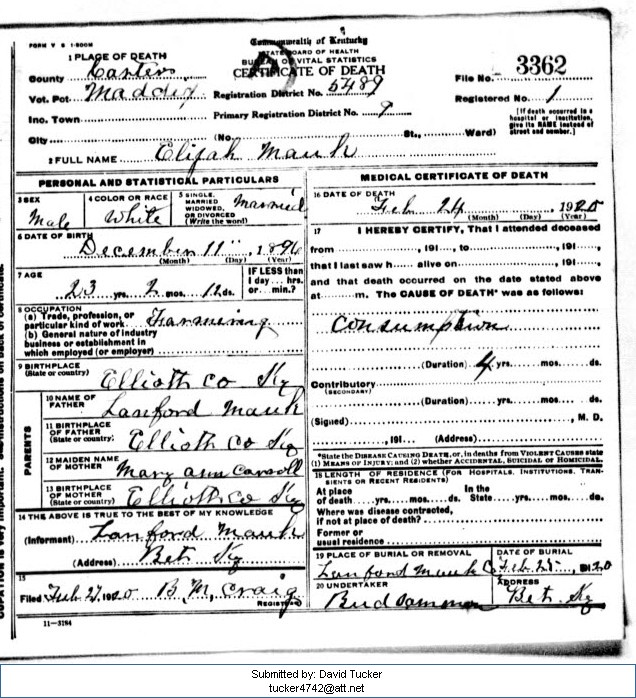 FORM V S 1-500M
Commonwealth of Kentucky
STATE BOARD OF HEALTH
BUREAU OF VITAL STATISTICS
CERTIFICATE OF DEATH
1 PLACE OF DEATH
County Carter
Vot. Pct. Maddix
Registration District No. 5489
File No. 3362
Inc. Town
Primary Registration District No. 9
Registered No. 1
City (No. St., Ward)
[If death occurred in a hospital or institution, give its NAME instead of street and number.]
2 FULL NAME Elijah Mauk
PERSONAL AND STATISTICAL PARTICULARS
3 SEX Male
4 COLOR OR RACE White
5 SINGLE, MARRIED WIDOWED, OR DIVORCED (Write the word) Married
6 DATE OF BIRTH December 11", 1896
(Month) (Day) (Year)
7 AGE 23 yrs. 2 mos. 12 ds.
IF LESS than 1 day... hrs. or... min.?
8 OCCUPATION
(a) Trade, profession, or particular kind of work Farming
(b) General nature of industry business or establishment in which employed (or employer)
9 BIRTHPLACE (State or country) Ellioth Co Ky
PARENTS
10 NAME OF FATHER Lanford Mauk
11 BIRTHPLACE OF FATHER (State or country) Ellioth Co Ky
12 MAIDEN NAME OF MOTHER Mary Ann
13 BIRTHPLACE OF MOTHER (State or country) Ellioth Co Ky
14 THE ABOVE IS TRUE TO THE BEST OF MY KNOWLEDGE
(Informant) Lanford Mauk
(Address) Bet Ky
15
Filed Feb 27, 1920 B. M. Craig
REGISTRAR
11-3184
MEDICAL CERTIFICATE OF DEATH
16 DATE OF DEATH
Feb 24 1920
(Month) (Day) (Year)
17 I HEREBY CERTIFY, That I attended deceased
from , 191 , to , 191 ,
that I last saw h alive on , 191 ,
and that death occurred on the date stated above
at m. The CAUSE OF DEATH* was as follows:
Consumption
(Duration) 4 yrs. mos. ds.
Contributory
(SECONDARY)
(Duration) yrs. mos. ds.
(Signed) , M. D.
, 191 (Address)
*State the DISEASE CAUSING DEATH, or, in deaths from VIOLENT CAUSES state
(1) MEANS OF INJURY; and (2) whether ACCIDENTAL, SUICIDAL or HOMICIDAL.
18 LENGTH OF RESIDENCE (FOR HOSPITALS, INSTITUTIONS, TRANSIENTS OR RECENT RESIDENTS)
At place of death yrs. mos. ds. In the State yrs. mos. ds.
Where was disease contracted,
if not at place of death?
Former or
usual residence
19 PLACE OF BURIAL OR REMOVAL
Lanford Mauk
DATE OF BURIAL
Feb 25, 1920
20 UNDERTAKER
Bud
ADDRESS
Bet Ky
Submitted by: David Tucker
tucker4742@att.net